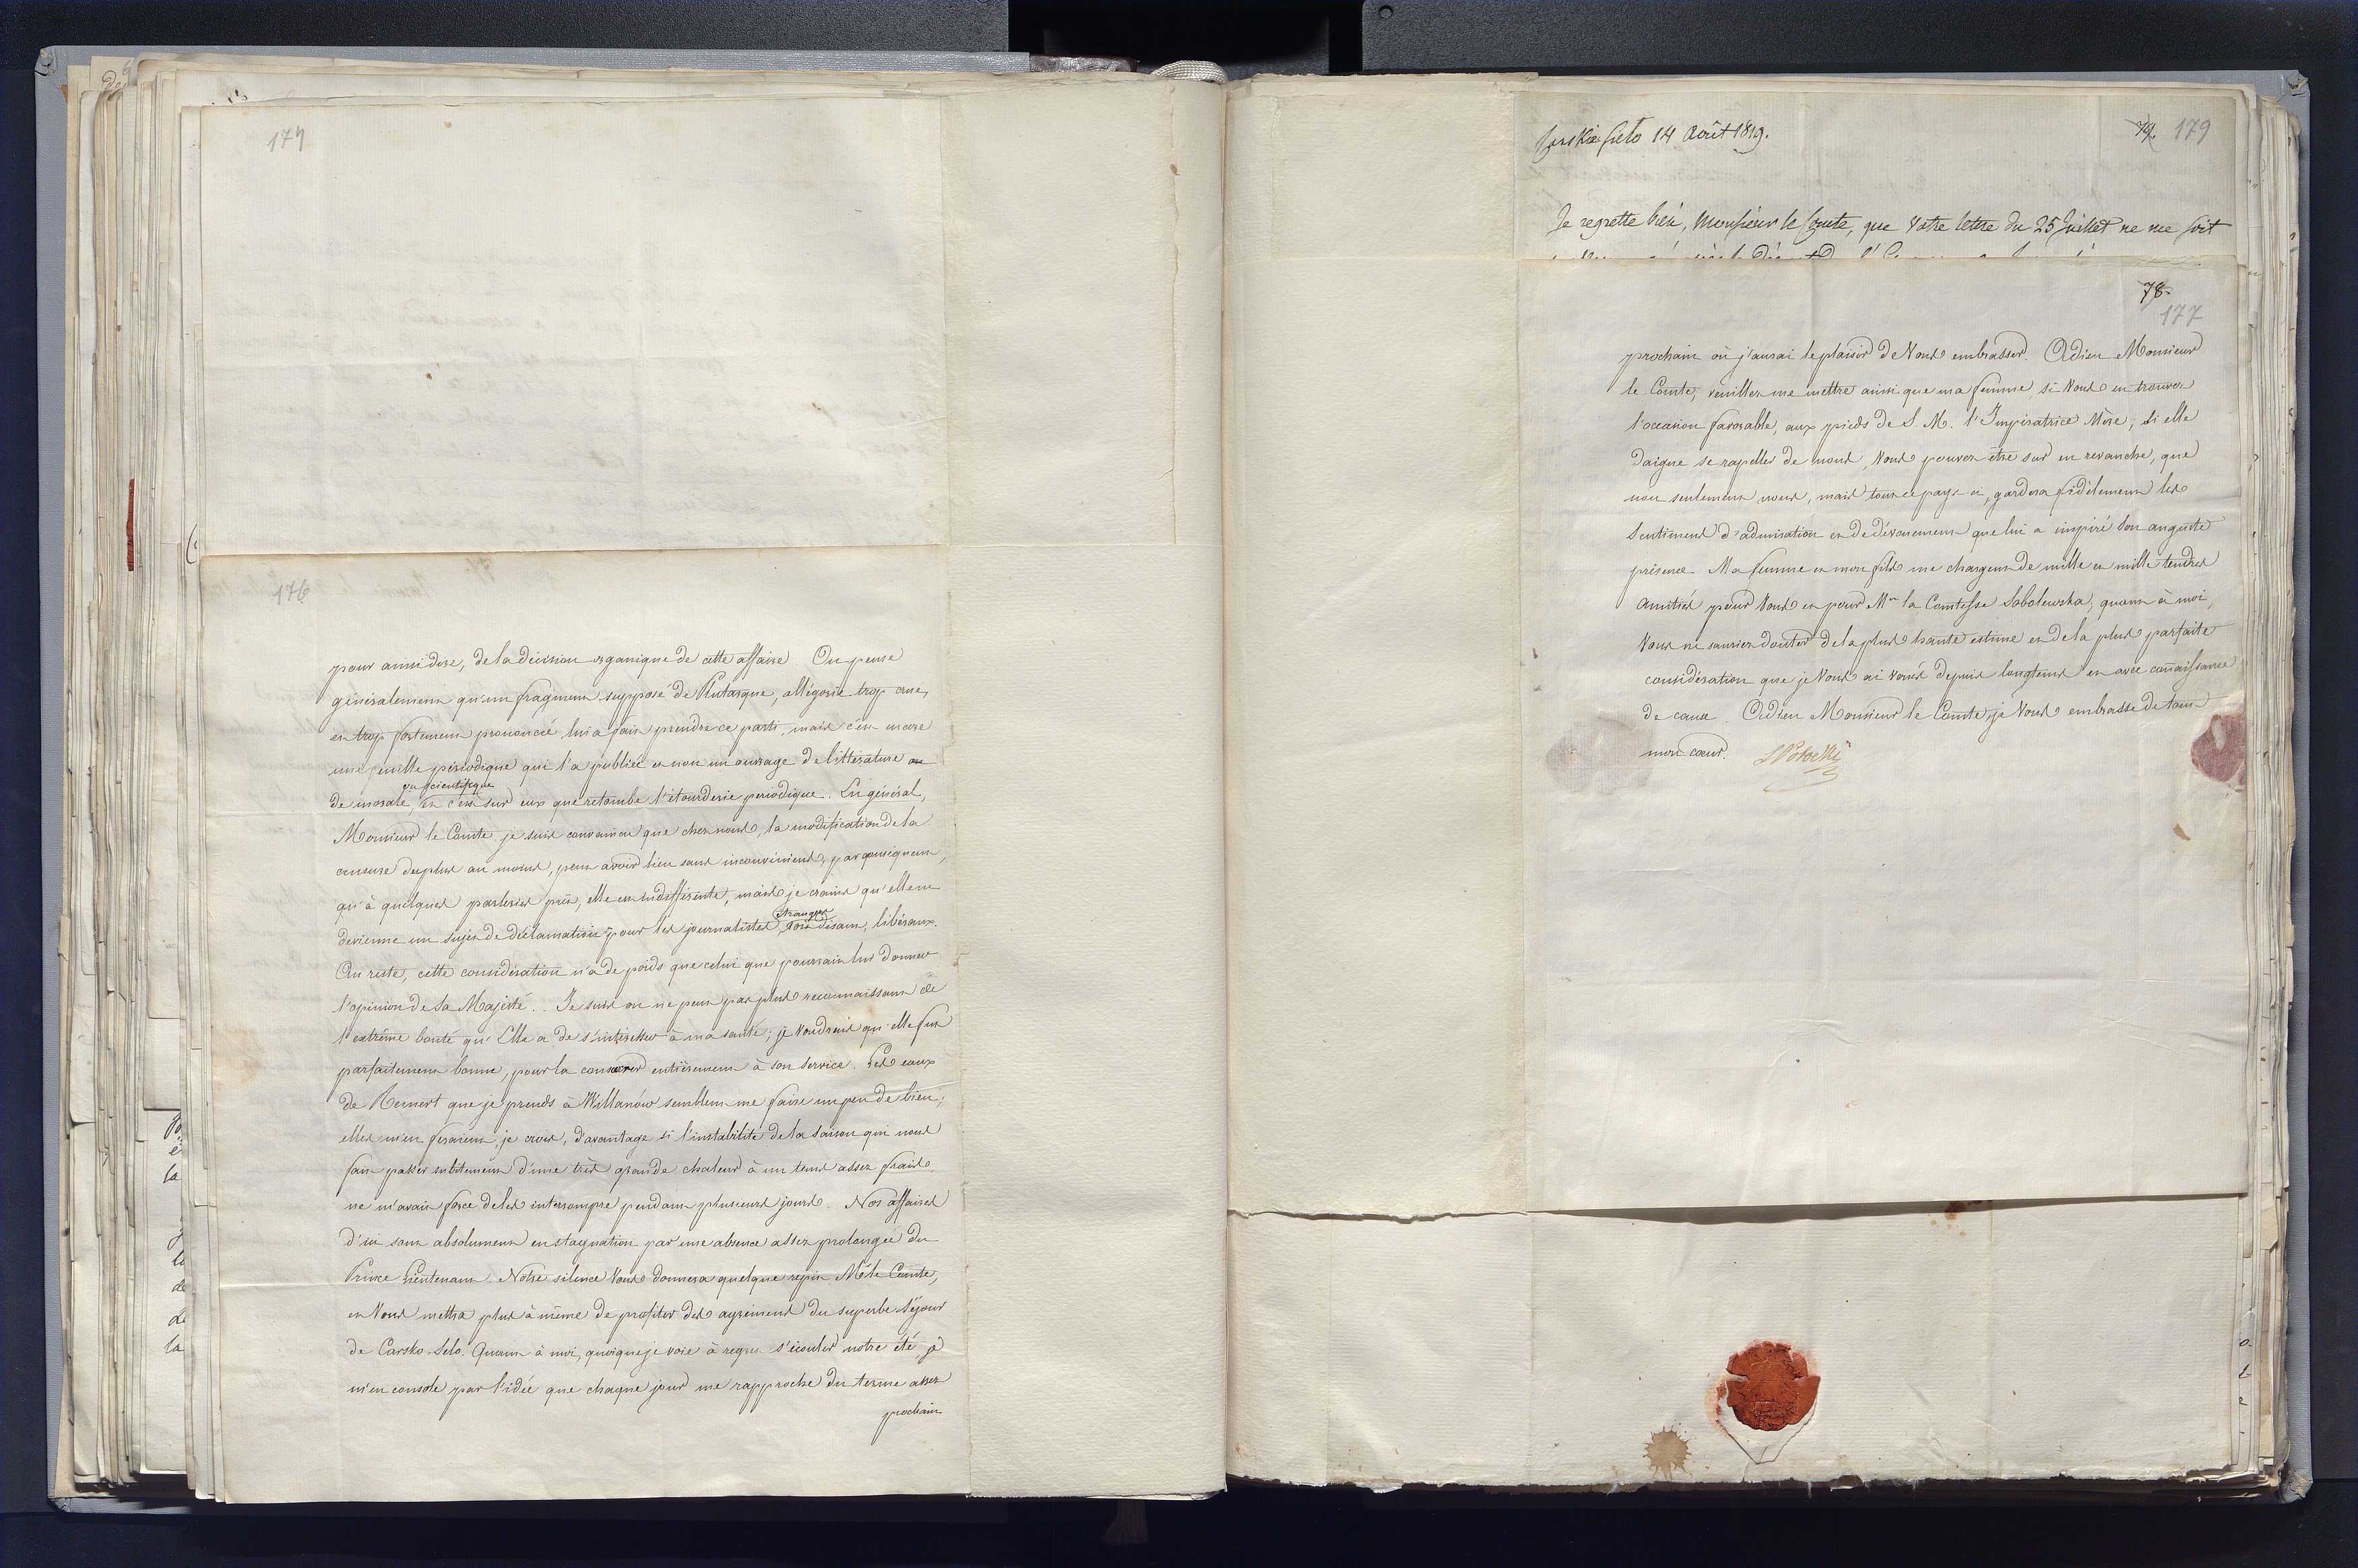 174
176
pour ainsi dire, de la décision organique de cette affaire. On pense
généralement qu'un fragment supposé de Plutarque, allégorie trop crue,
et trop fortement prononcée, lui a fait prendre ce parti, mais c'est encore
une feuille périodique qui l'a publiée et non un ouvrage de littérature ou
ou scientifique
de morale, et c'est sur eux que retombe l'étourderie periodique. En général,
Monsieur le Comte je suis convaincu que chez nous, la modification de la
censure du plus au moins, peut avoir lieu sans inconvénient, par conséquent,
qu'à quelques parleries près, elle est indifférente, mais je crains qu'elle ne
étrangers
devienne un sujet de déclamation pour les journalistes soi disant, libéraux.
Au reste, cette considération n'a de poids que celui que pourrait lui donner
l'opinion de Sa Majesté. Je suis on ne peut pas plus reconnaissant de
l'extrême bonté qu'Elle a de s'intéresser à ma santé; je voudrais qu'elle fut
parfaitement bonne, pour la consacrer entièrement à son service. Les eaux
de Reinert que je prends à Willanów semblent me faire un peu de bien;
elles m'en feraient, je crois, d'avantage si l'instabilité de la saison qui nous
fait passer subitement d'une très grande chaleur à un tems assez froid,
ne m'avait forcé de les interrompre pendant plusieurs jours. Nos affaires
d'ici sont absolument en stagnation par une absence assez prolongée du
Prince Lieutenant. Notre silence Vous donnera quelque répit Mr le Comte,
et Vous mettra plus à même de profiter des agrémens du superbe séjour
de Carsko-Selo. Quant à moi, quoique je voie à regret s'écouler notre été, je
m'en console par l'idée que chaque jour me rapproche du terme assez
prochain
Zarskoe Sielo 14 Août 1819.
79. 179
Je regrette bien, Monsieur le Comte, que Votre lettre du 25 Juillet ne me soit
78.
177
prochain où j'aurai le plaisir de Vous embrasser. Adieu Monsieur
le Comte, veuillez me mettre ainsi que ma femme, si Vous en trouvez
l'occasion favorable, aux pieds de S. M. l'Impératrice Mère; si elle
daigne se rapeller de nous, Vous pouvez être sur en revanche, que
non seulement nous, mais tout ce pays-ci, gardera fidèlement les
sentimens d'admiration et de dévouement que lui a inspiré son auguste
présence. Ma femme et mon fils me chargent de mille et mille tendres
amitiés pour Vous et pour Me la Comtesse Sobolewska; quant à moi,
Vous ne sauriez douter de la plus haute estime et de la plus parfaite
considération que je Vous ai vouée depuis longtems et avec connaissance
de cause. Adieu Monsieur le Comte, je Vous embrasse de tout
mon cœur. SPotocki